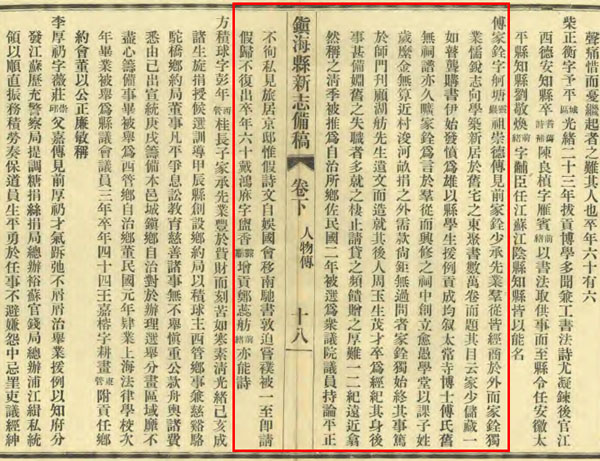 聲痛惜而憂繼起者之難其人也卒年六十有六
柴正衡字予平城區光緒二十三年拔貢博學多聞兼工書法詩尤凝鍊後官江
西德安知縣卒陳良楨字雁賓以書法取供事而至縣令任安徽太
平縣知縣劉敬煥字黼臣任江蘇江陰縣知縣皆以能名
傅家銓字舸塘祖崇德傳見前家銓少承先業羣從皆經商於外而家銓獨
業儒銳志向學築新居於舊宅之東聚書數萬卷而題其目云家少儲藏一
如瞽聾購書伊始發憤爲雄以縣學生援例貢成均敘太常寺博士傅氏舊
無祠譜亦家銓爲言於羣從而興修之祠中創立愈愚學堂以課子姓
歲縻金無算近村浚河畝捐之外需款尙鉅無過問者家銓獨始終其事篤
於師門刊顧湖舫先生遺文而造就其後人周玉生茂才卒爲經紀其身後
事甚備姻舊之失職者多就之棲止請貸之頻餽贈之厚難一二紀遠近翕
然稱之清季被推爲自治所鄉佐民國二年被選爲衆議院議員持論平正
鎭海縣新志備稿 卷下 人物傳 十八
不徇私見旅居京邸惟假詩文自娛國會移南馳書敦迫嘗襆被一至卽請
假歸不復出卒年六十戴鴻字鹽香增貢鄭蕊舫亦能詩
方積球字彭年西管桂長子家承先業豐於貲財而刻苦如寒素清光緒己亥成
諸生旋捐授候選訓導甲辰縣創設鄉約局以積球主西管鄉事兼慈谿駱
駝橋鄉約局董事凡不爭息訟教育慈善諸事無不舉愼重公款舟輿諸費
悉由己出宣統庚戌籌備本邑城鎭鄉自治對於辦理選舉分畫區域靡不
盡心籌備事畢被舉爲西管鄉自治鄉董民國元年肄業上海法律學校次
年畢業被舉爲縣議會議員三年卒年四十四王嘉榕字耕畫東管附貢任鄉
約會董以公正廉敏稱
李厚礽字薇莊崇邱父嘉傳見前厚礽才氣跅弛不屑屑治舉業援例以知府分
發江蘇歷充警察局提調糖捐絲捐局總辦裕蘇官錢局總辦浦江緝私統
領以順直振務積勞奏保道員生平勇於任事不避嫌怨中忌罣吏議經紳